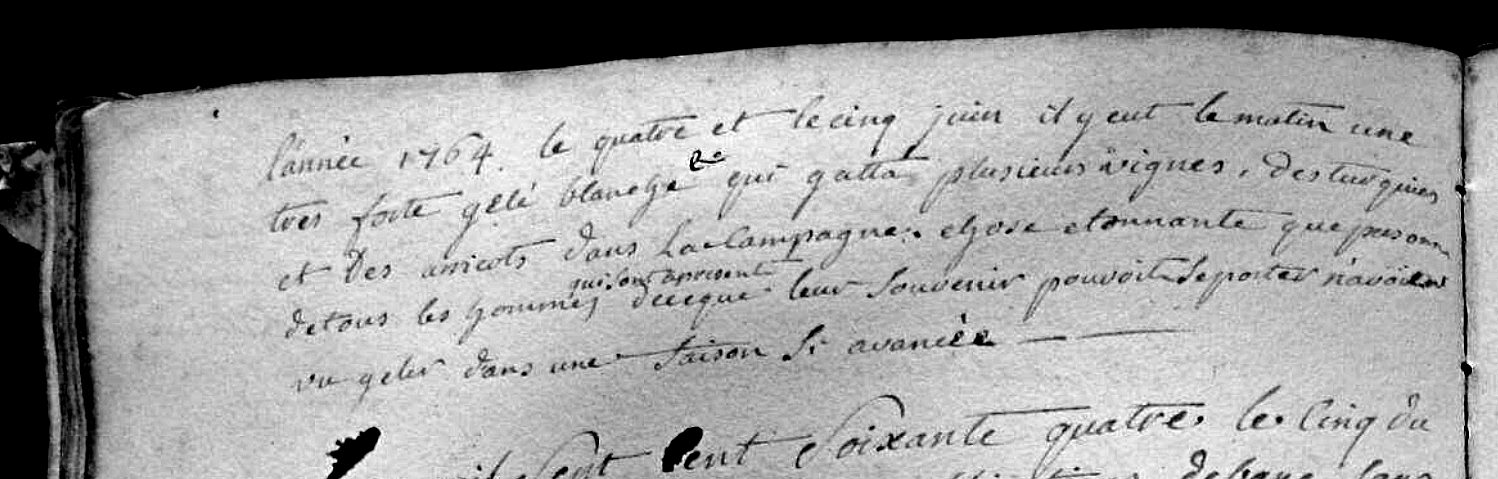 l'année 1764. le quatre et le cinq juin il y eut le matin une
tres forte gelé blanche qui gatta plusieurs vignes, des turquies
et des arricots dans La Campagne. chose etonnante que personne
qui sont apresent
de tous les hommes deceque leur souvenir pouvoit se porter n'avoient
vu geler dans une saison si avancée
sept cent soixante quatre, le cinq du